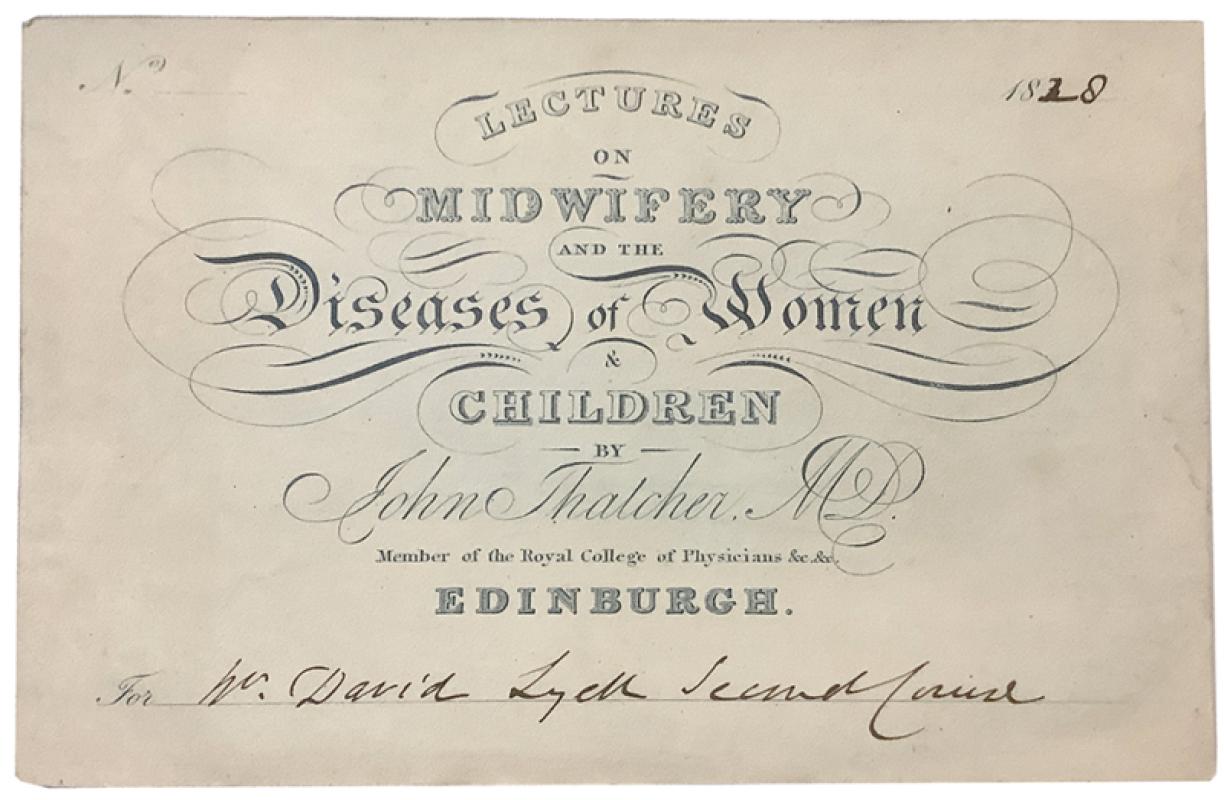 No.
1828
LECTURES
ON
MIDWIFERY
AND THE
Diseases of Women
&
CHILDREN
BY
John Thatcher. MD.
Member of the Royal College of Physicians &c. &c.
EDINBURGH.
For Mr. David Lyell Second Course